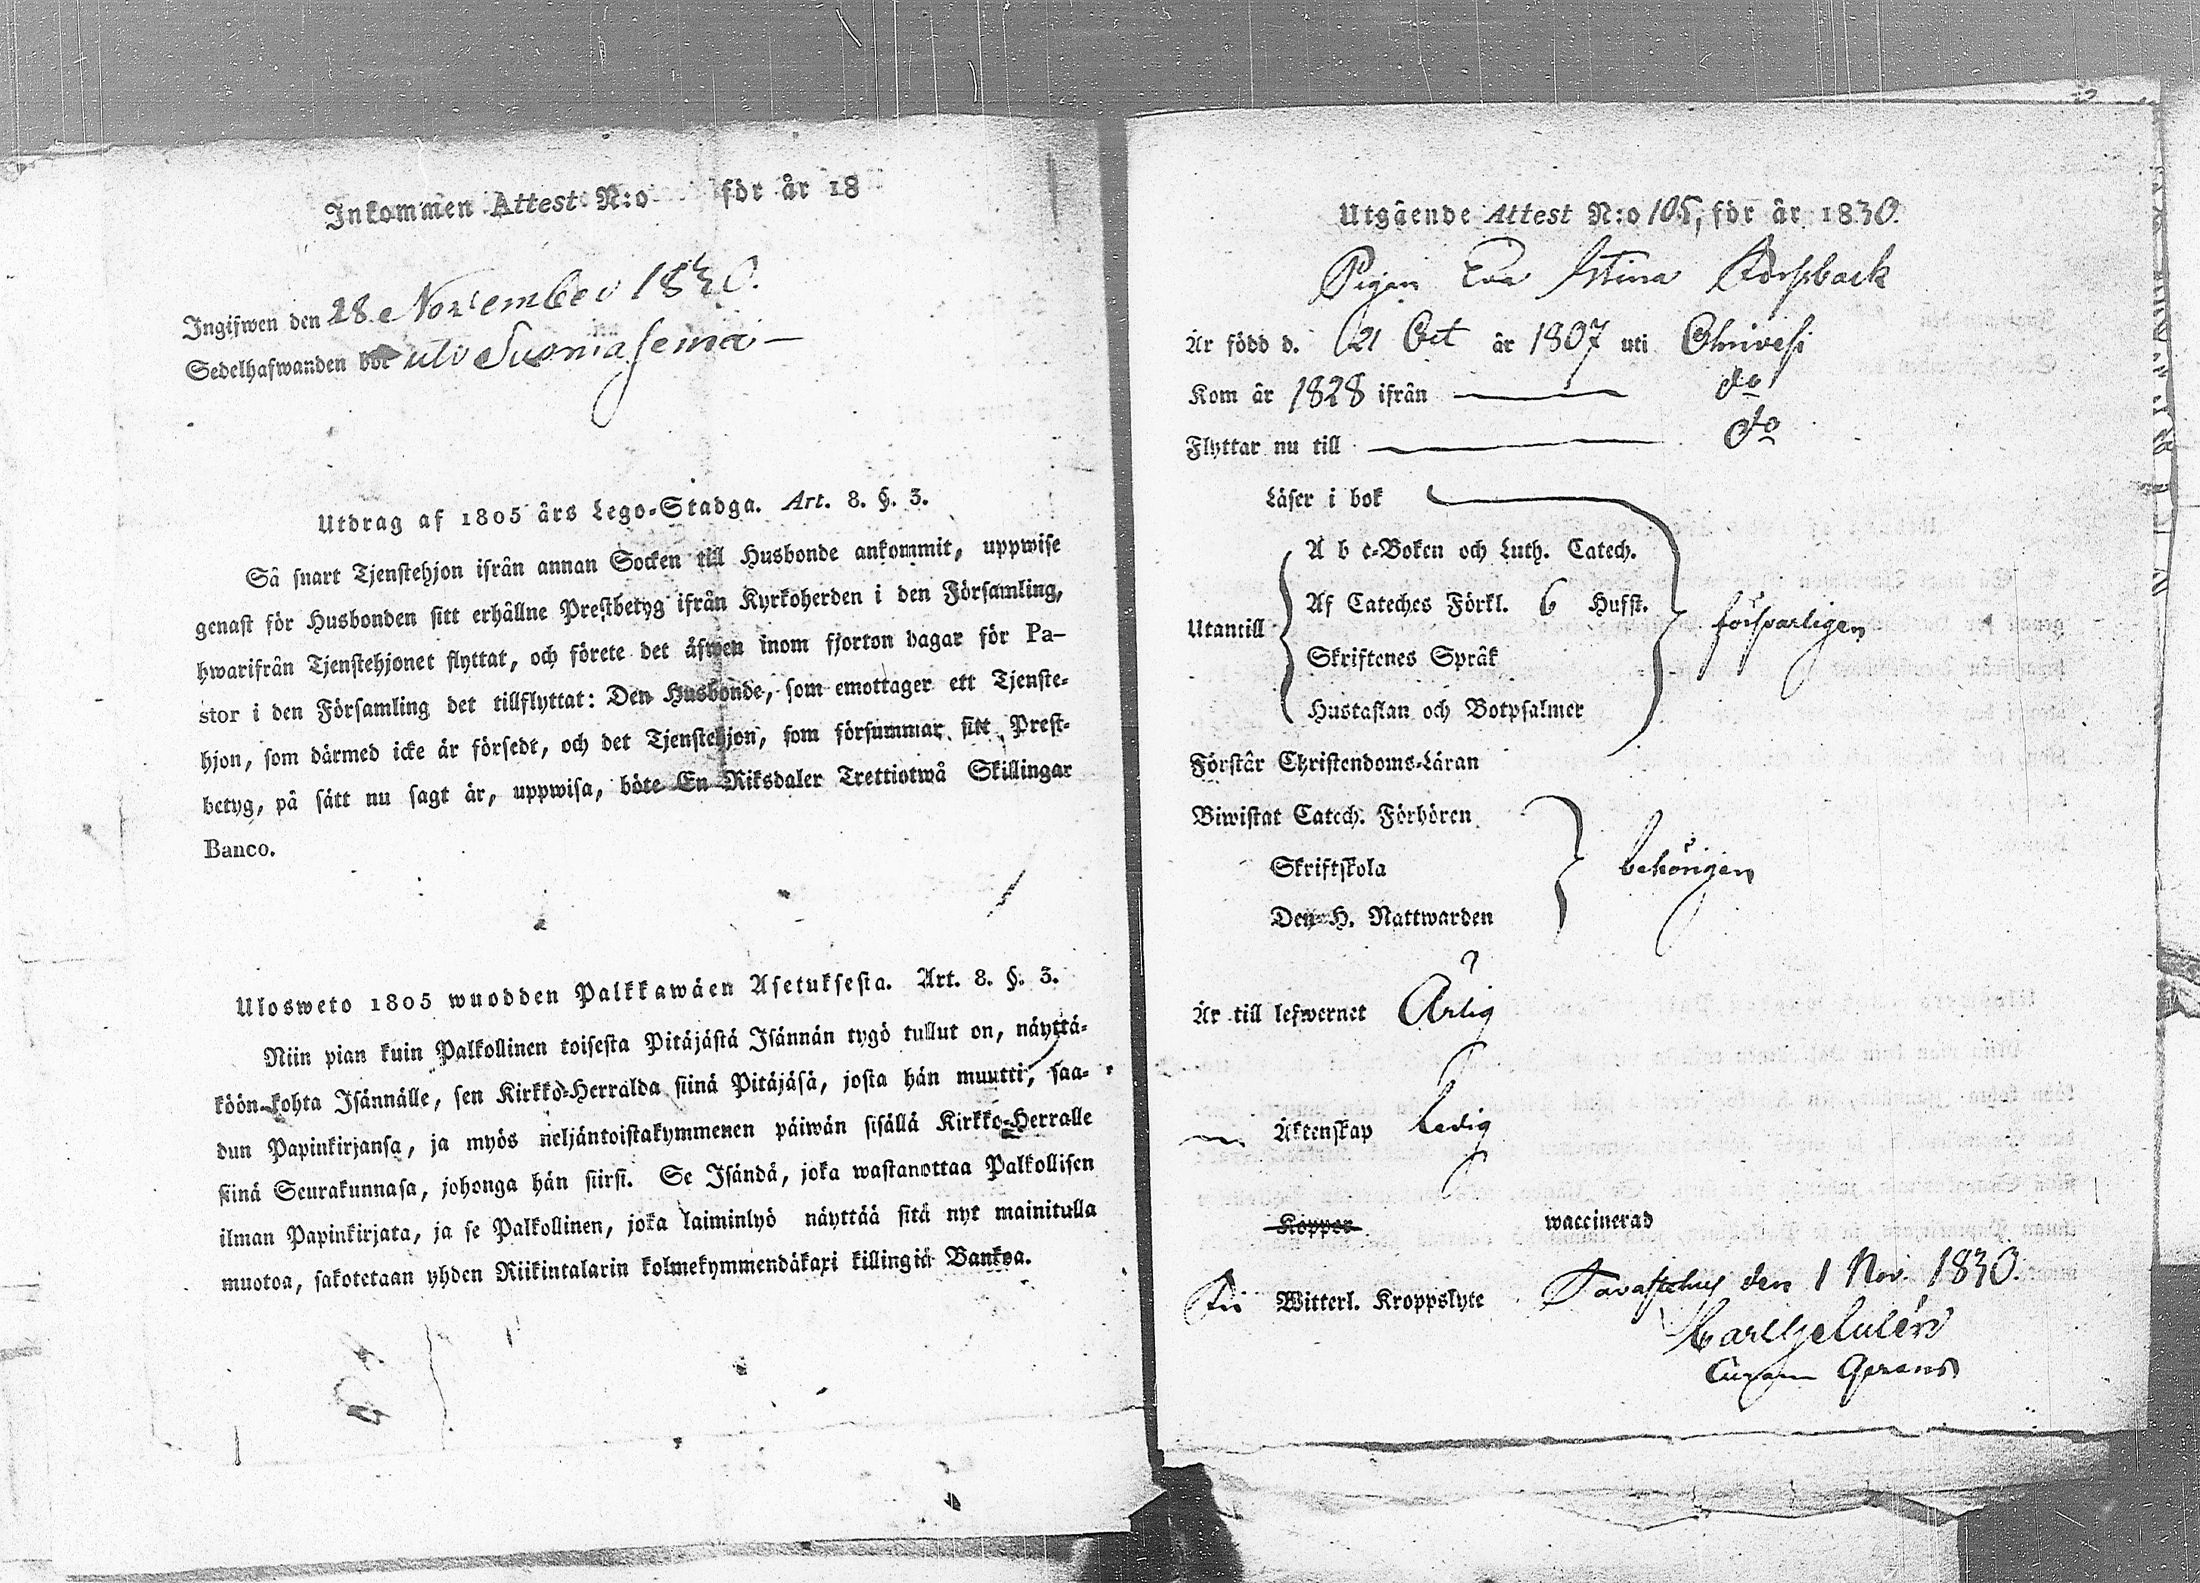 Inkommen Attest N:o för år 18
Ingifwen den 28 November 1830.
Sedelhafwanden bor uti Suoniasema —
Utdrag af 1805 års Lego-Stadga. Art. 8. §. 3.
Så snart Tjenstehjon ifrån annan Socken till Husbonde ankommit, uppwise
genast för Husbonden sitt erhållne Prestbetyg ifrån Kyrkoherden i den Församling,
hwarifrån Tjenstehjonet flyttat, och förete det äfwen inom fjorton dagar för Pa-
stor i den Församling det tillflyttat: Den Husbonde, som emottager ett Tjenste-
hjon, som därmed icke är försedt, och det Tjenstehjon, som försummar sitt Prest-
betyg, på sätt nu sagt är, uppwisa, böte En Riksdaler Trettiotwå Skillingar
Banco.
Ulosweto 1805 wuodden Palkkawäen Asetuksesta. Art. 8. §. 3.
Niin pian kuin Palkollinen toisesta Pitäjästä Isännän tygö tullut on, näyttä-
köön kohta Isännälle, sen Kirkko-Herralda siinä Pitäjäsä, josta hän muutti, saa-
dun Papinkirjansa, ja myös neljäntoistakymmenen päiwän sisällä Kirkko-Herralle
siinä Seurakunnasa, johonga hän siirsi. Se Isändä, joka wastanottaa Palkollisen
ilman Papinkirjata, ja se Palkollinen, joka laiminlyö näyttää sitä nyt mainitulla
muotoa, sakotetaan yhden Riikintalarin kolmekymmendäkaxi killingiä Bankoa.
Utgående Attest N:o 105, för år 1830.
Pigan Eva Stina Forssback
Är född d. 21 Oct år 1807 uti Orivesi
Kom år 1828 ifrån — do
Flyttar nu till — do
Läser i bok
A b c-Boken och Luth. Catech.
Utantill Af Cateches Förkl. 6 Hufst. försvarligen
Skriftenes Språk
Hustaflan och Botpsalmer
Förstår Christendoms-Läran
Biwistat Catech. Förhören
Skriftskola behörigen
Den H. Nattwarden
Är till lefwernet Ärlig
Äktenskap Ledig
Koppor waccinerad
Fri Witterl. Kroppslyte Tavastehus den 1 Nov. 1830.
Gerens